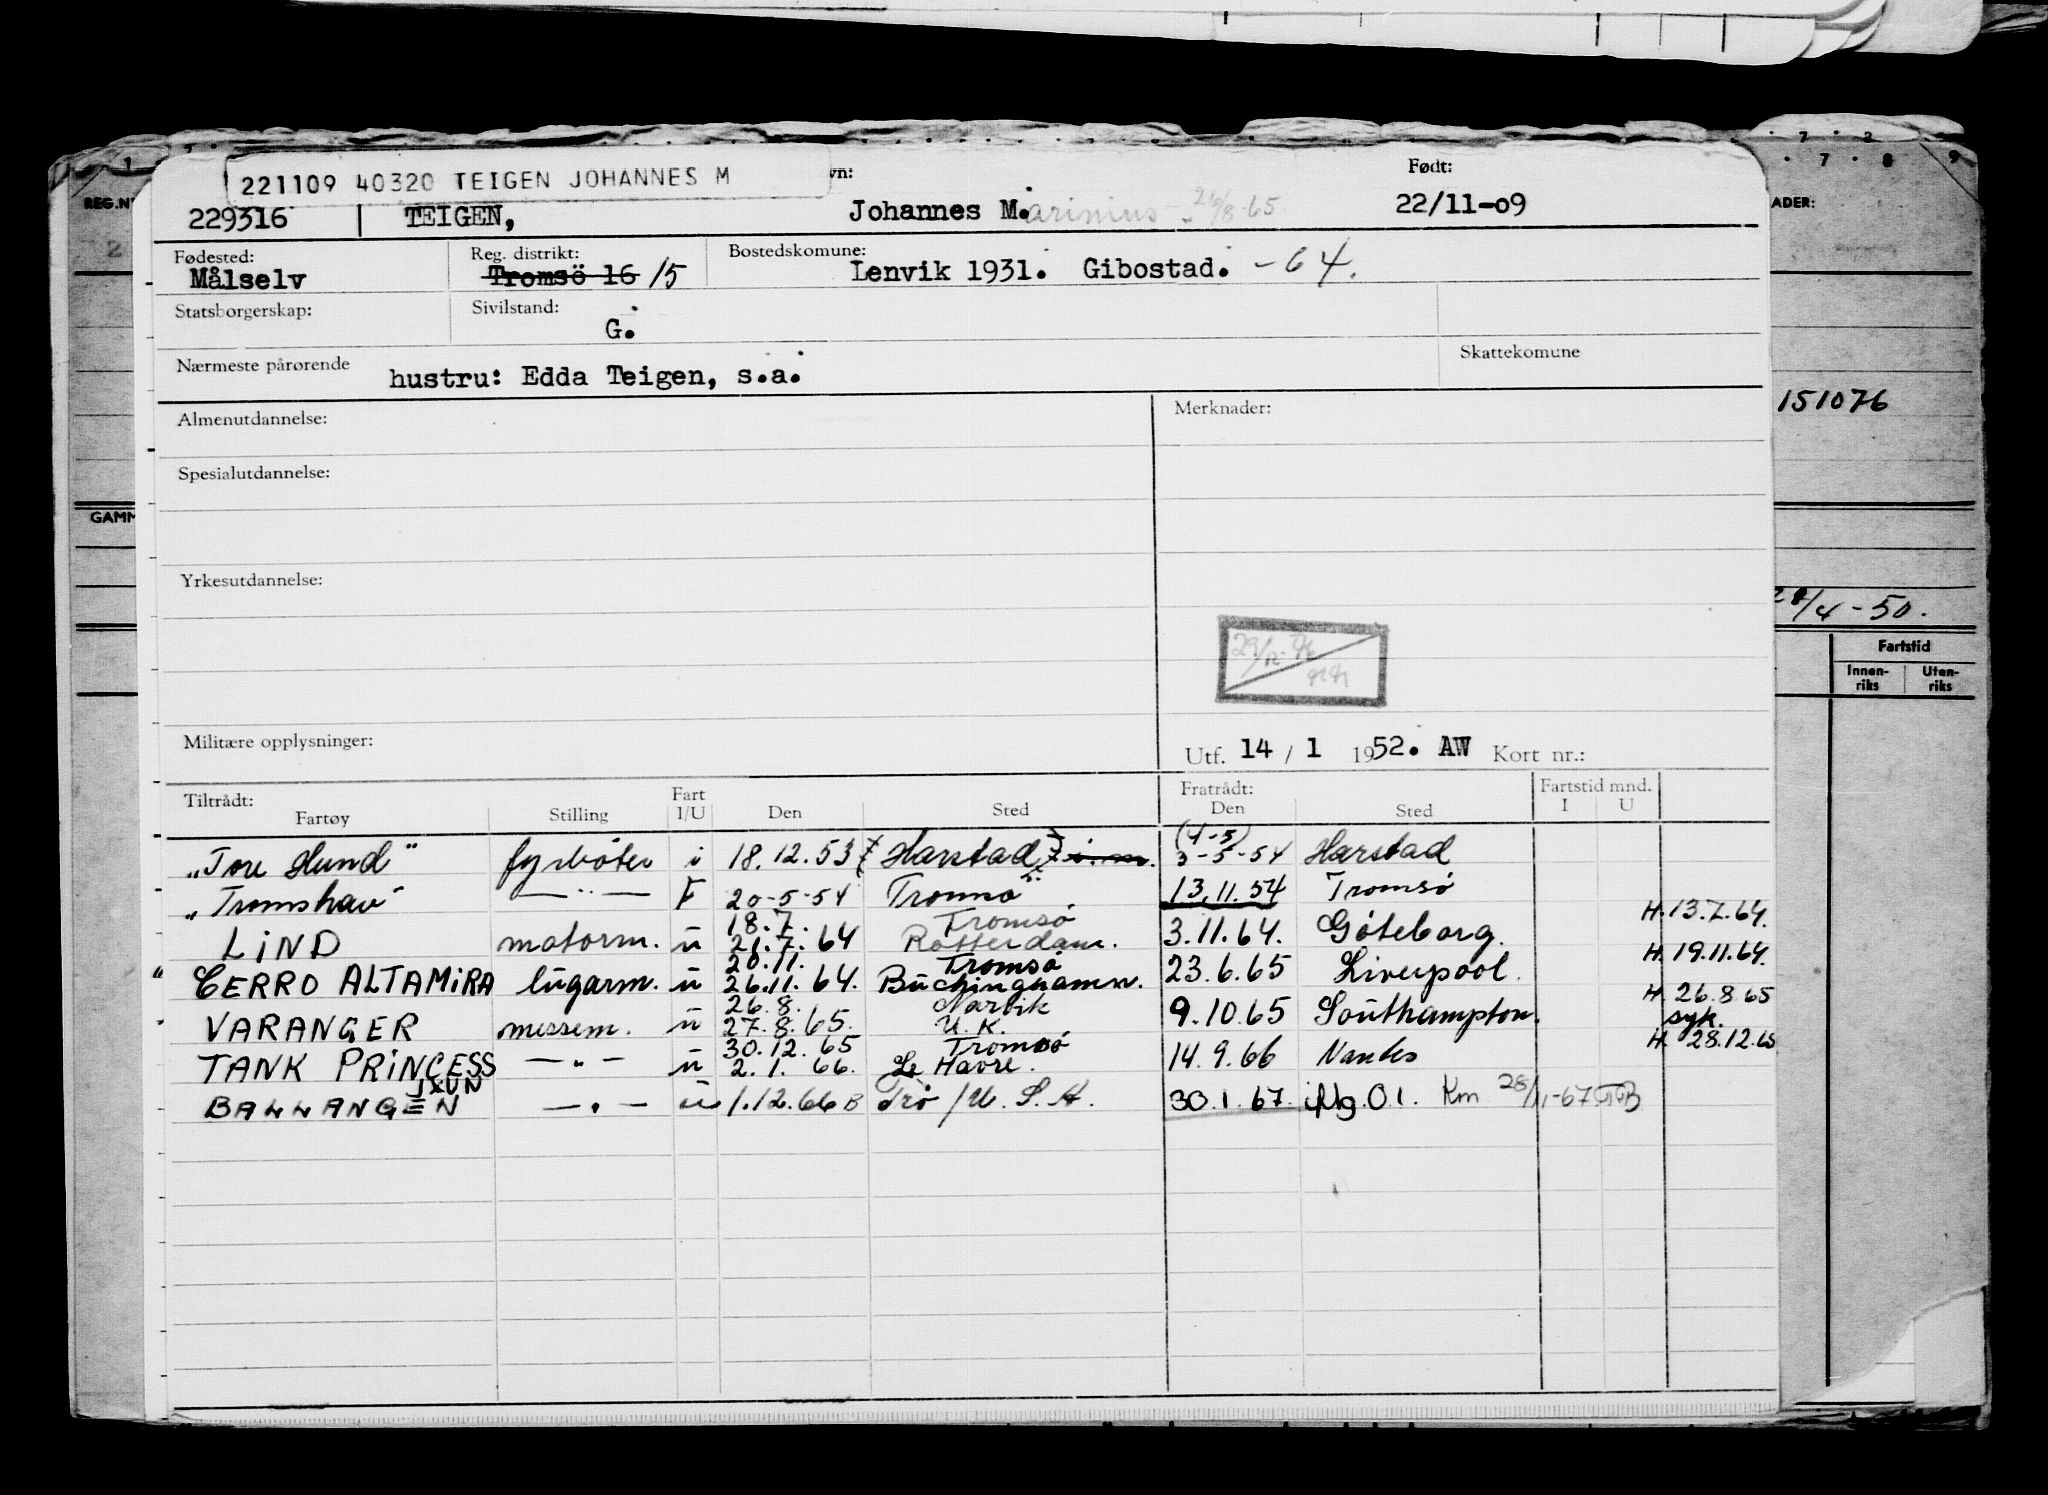 221109 40320 TEIGEN JOHANNES M
vn: Født:
229316 TEIGEN, Johannes M.arinius 26/8-65 22/11-09
Fødested: Reg. distrikt: Bostedskomune:
Målselv Tromsö 16 15 Lenvik 1931. Gibostad. -64.
Statsborgerskap: Sivilstand:
G.
Nærmeste pårørende Skattekomune
hustru: Edda Teigen, s.a.
Almenutdannelse: Merknader:
Spesialutdannelse:
Yrkesutdannelse:
29/12-76
Militære opplysninger: Utf. 14 / 1 1952. AW Kort nr.:
Tiltrådt: Fart Fratrådt: Fartstid mnd.
Fartøy Stilling I/U Den Sted Den Sted I U
(4-5)
"Tore Hund" fyrbøter i 18.12.53 Harstad 3-5-54 Harstad
"Tromshav" —"— 20-5-54 Tromsø 13.11.54 Tromsø
18.7. Tromsø H. 13.7.64.
LIND motorm. u 21.7.64 Rotterdam. 3.11.64. Göteborg.
20.11. Tromsø H. 19.11.64.
" CERRO ALTAMIRA lugarm. u 26.11.64. 23.6.65 Liverpool.
26.8. Narvik H. 26.8.65
VARANGER messem. u 27.8.65. U.K. 9.10.65 Southampton. syk.
30.12.65 Tromsø H. 28.12.65
TANK PRINCESS —"— u 2.1.66. Le Havre. 14.9.66 Nantes
BALLANGEN —"— u 1.12.66 B Trø/U.S.A. 30.1.67. Mg.O1. Km 28/11-67
REG.N
GAMM
ADER:
151076
28/4-50.
Fartstid
Innen-riks Uten-riks